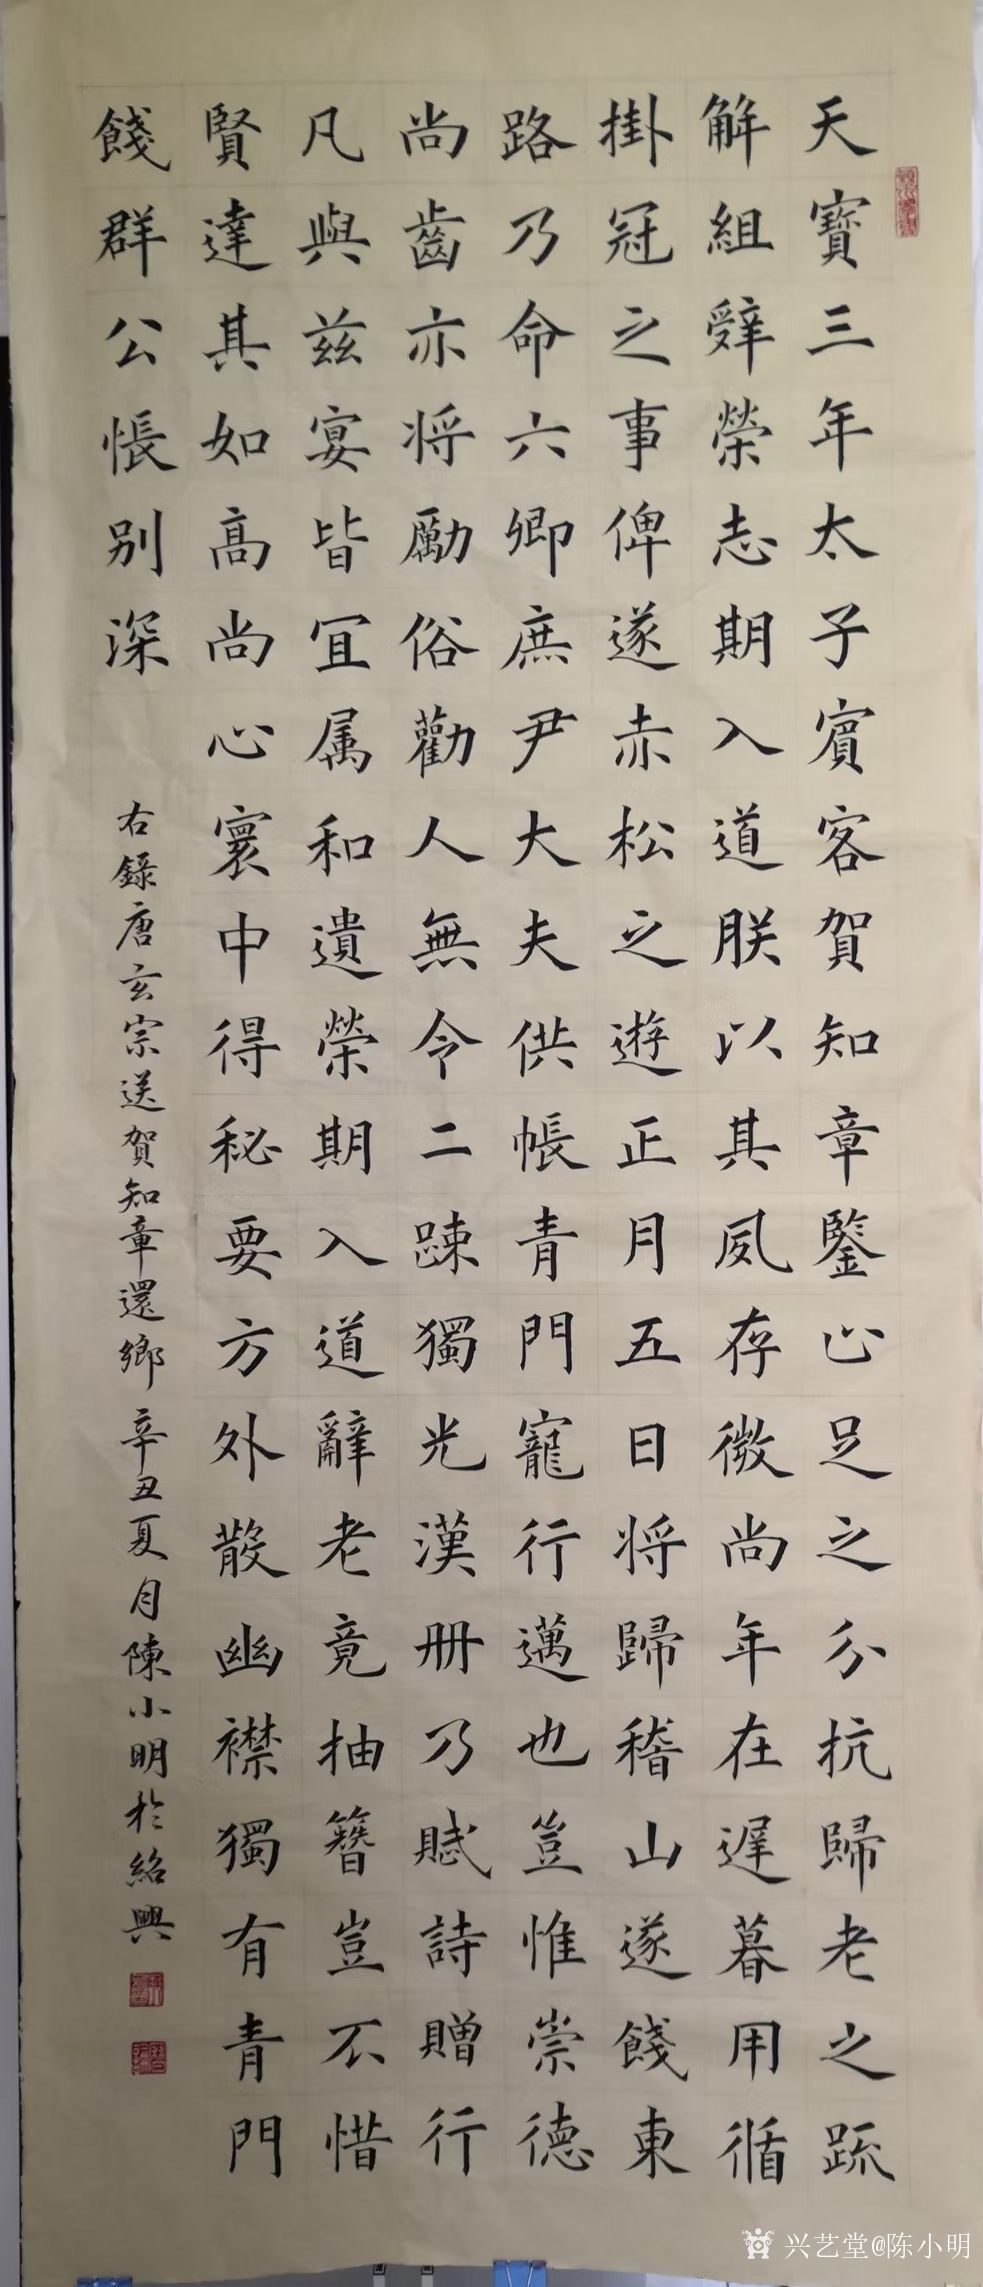 天寶三年太子賓客賀知章鑒止足之分抗歸老之疏
解組辤榮志期入道朕以其夙存微尚年在遲暮用循
掛冠之事俾遂赤松之遊正月五日將歸稽山遂餞東
路乃命六卿庶尹大夫供帳青門寵行邁也豈惟崇德
尚齒亦将勵俗勸人無令二踈獨光漢册乃賦詩贈行
凡與兹宴皆宜属和遺榮期入道辭老竟抽簪豈不惜
賢達其如高尚心寰中得秘要方外散幽襟獨有青門
餞群公悵别深
右錄唐玄宗送賀知章還鄉 辛丑夏月陳小明於紹興
兴艺堂@陈小明